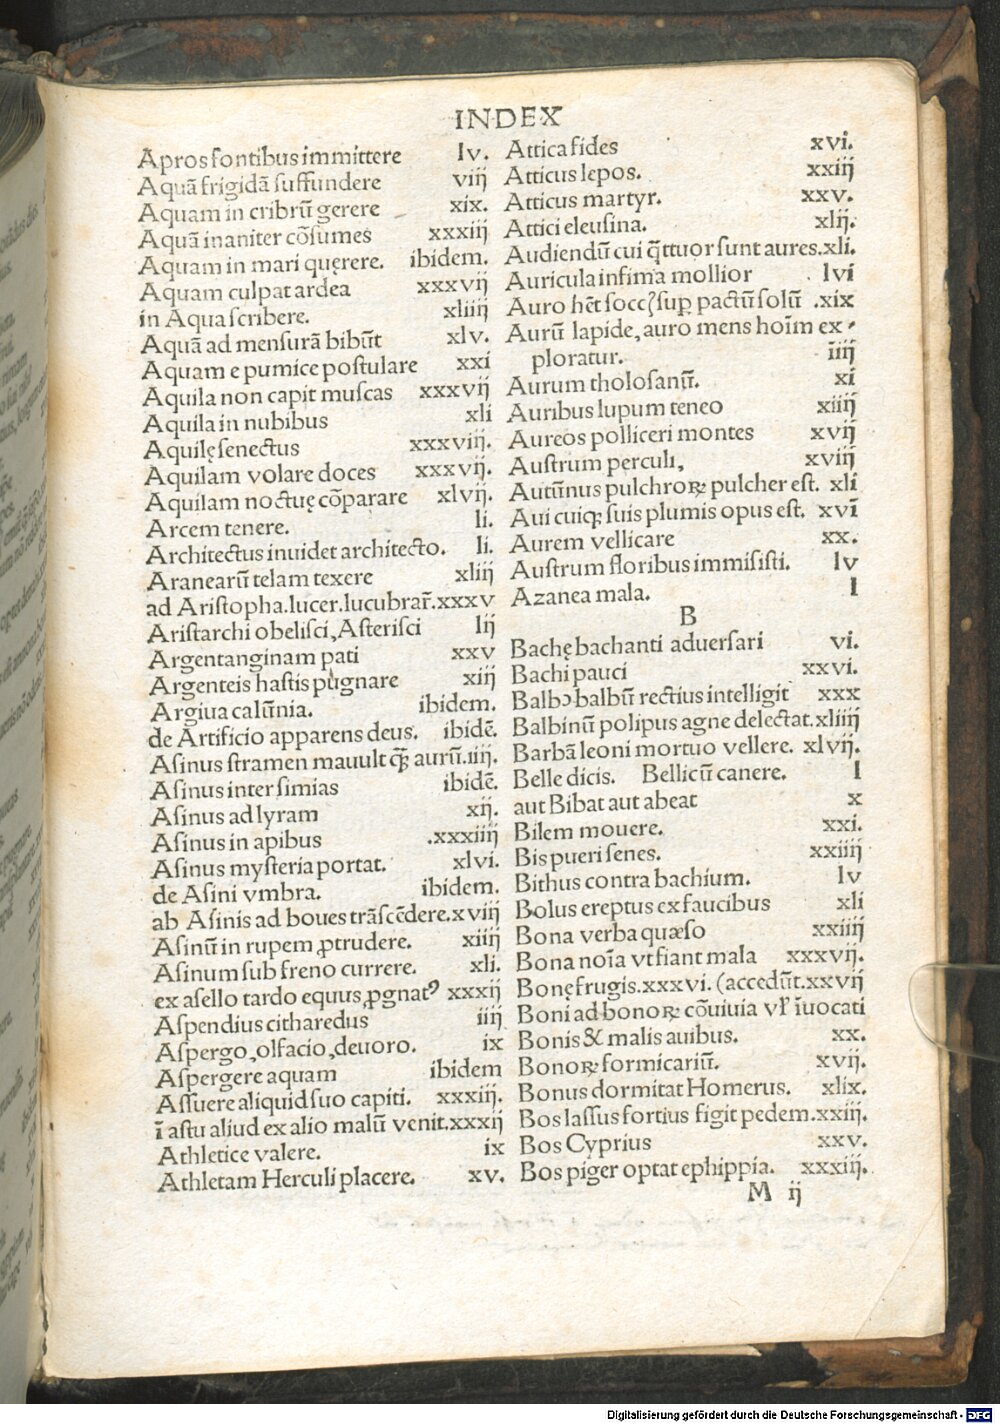 INDEX
Apros fontibus immittere lv.
Aquā frigidā suffundere viij
Aquam in cribrū gerere xix.
Aquā inaniter cōsumes xxxiij
Aquam in mari quęrere. ibidem.
Aquam culpat ardea xxxvij
in Aqua scribere. xliiij
Aquā ad mensurā bibūt xlv.
Aquam e pumice postulare xxi
Aquila non capit muscas xxxvij
Aquila in nubibus xli
Aquilę senectus xxxviij.
Aquilam volare doces xxxvij.
Aquilam noctuę cōparare xlvij.
Arcem tenere. li.
Architectus inuidet architecto. li.
Aranearū telam texere xliij
ad Aristopha.lucer.lucubrar̄.xxxv
Aristarchi obelisci,Asterisci lij
Argentanginam pati xxv
Argenteis hastis pugnare xiij
Argiua calūnia. ibidem.
de Artificio apparens deus. ibidē.
Asinus stramen mauult q̄ꝫ aurū.iiij.
Asinus inter simias ibidē.
Asinus ad lyram xij.
Asinus in apibus .xxxiiij
Asinus mysteria portat. xlvi.
de Asini vmbra. ibidem.
ab Asinis ad boues trāscēdere.xviij
Asinū in rupem ꝓtrudere. xiiij
Asinum sub freno currere. xli.
ex asello tardo equus ꝓgnatꝰ xxxij
Aspendius citharedus iiij
Aspergo,olfacio,deuoro. ix
Aspergere aquam ibidem
Assuere aliquid suo capiti. xxxiij.
ī astu aliud ex alio malū venit.xxxij
Athletice valere. ix
Athletam Herculi placere. xv.
Attica fides xvi.
Atticus lepos. xxiij
Atticus martyr. xxv.
Attici eleusina. xlij.
Audiendū cui q̄ttuor sunt aures.xli.
Auricula infima mollior lvi
Auro hēt soccꝭ sup̱ pactū solū .xix
Aurū lapide,auro mens hoīm ex
ploratur. iiij
Aurum tholosanū. xi
Auribus lupum teneo xiiij
Aureos polliceri montes xvij
Austrum perculi, xviij
Autūnus pulchroꝝ pulcher est. xli
Aui cuiqꝫ suis plumis opus est. xvi
Aurem vellicare xx.
Austrum floribus immisisti. lv
Azanea mala. l
B
Bachę bachanti aduersari vi.
Bachi pauci xxvi.
Balbꝰ balbū rectius intelligit xxx
Balbinū polipus agne delectat.xliiij
Barbā leoni mortuo vellere. xlvij.
Belle dicis. Bellicū canere. l
aut Bibat aut abeat x
Bilem mouere. xxi.
Bis pueri senes. xxiiij
Bithus contra bachium. lv
Bolus ereptus ex faucibus xli
Bona verba quæso xxiiij
Bona noīa vt fiant mala xxxvij.
Bonę frugis.xxxvi. (accedūt.xxvij
Boni ad bonoꝝ cōuiuia vl' īuocati
Bonis & malis auibus. xx.
Bonoꝝ formicariū. xvij.
Bonus dormitat Homerus. xlix.
Bos lassus fortius figit pedem.xxiij.
Bos Cyprius xxv.
Bos piger optat ephippia. xxxiij.
M ij
Digitalisierung gefördert durch die Deutsche Forschungsgemeinschaft - DFG